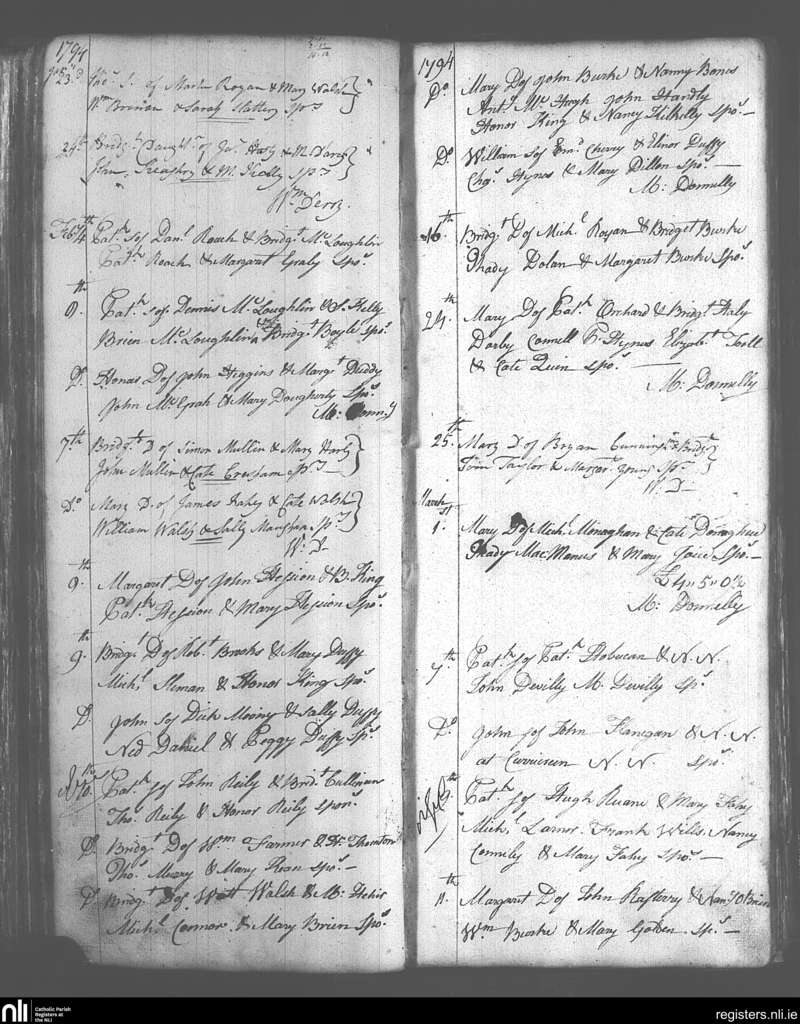 1794
Jan. 23d Thos. S. of Martin Rogan & Mary Walsh
Wm Brenan & Sarah Slattery Sprs
24th Bridgt. Daughtr. of Jas. Harty & M.
John & M. Kelly Sprs
Wm Derry.
Feby 4th Patk. So of Danl. Roach & Bridgt. McLoughlin
Patk. Roach & Margaret Graly Spos.
6. Patk. So of Dennis McLoughlin & S. Kelly
Brien McLoughlin & Bridgt. Boyle Spos.
Do. Honor Do of John Higgins & Margt. Duddy
John McGrah & Mary Dougherty Spos.
M:
7th Bridgt. D of Simon Mullin & Mary Harty
John Mullin & Cate Sprs
Do. Mary D. of James Fahey & Cate Walsh
William Walsh & Sally Sprs
W. D.
9th Margaret Do of John Hession & B. King
Patk. Hession & Mary Hession Spos.
9th Bridgt. Do of Robt. Brooks & Mary Duffy
Michl. & Honor King Spos.
D. John So of Dick Mooney & Sally Duffy
Ned Daniel & Peggy Duffy Spos.
10th Patk. So of John Reily & Bridt. Cullinan
Thos. Reily & Honor Reily Spons.
D. Bridgt. Do of Wm Farmer & W. Thornton
Thos. & Mary Roan Spos.
Do. Bridgt. Do of Walsh & M:
Michl. Connor & Mary Brien Spos.
1794
Do. Mary Do of John Burke & Nanny Bones
Anty. McHugh John Hardly
Honor King & Nancy Kilkelly Spos.
Do. William So of Cheevy & Elinor Duffy
Chas. Hynes & Mary Dillon Spos.
M: Donnelly
16th Bridgt. Do of Michl. Rogan & Bridget Burke
Thady Dolan & Margaret Burke Spos.
24th Mary Do of Patk. Orchard & Bridgt. Haly
Darby Connell P. Hynes Elizabt.
& Cate Quin Spos.
M: Donnelly
25th Mary D of Bryan & Bridgt.
Taylor & Margt. Young Sprs
W. D
March
1st Mary Do of Michl. Monaghan & Cate Donaghue
Thady MacManus & Mary Joice Spos.
£4"5"0½
M: Donnelly
7th Patk. So of Patk. & N. N.
John Devilly M. Devilly Sps.
Do. John So of John Flanegan & N. N.
at N. N. Spos.
Patk. So of Hugh Ruane & Mary Fahy
Michl. Larner. Frank Wills. Nancy
& Mary Fahy Spos.
11th Margaret Do of John Raftery & Nancy OBrien
Wm Burke & Mary Golden Sps.
nli Catholic Parish
Registers at
the NLI
registers.nli.ie